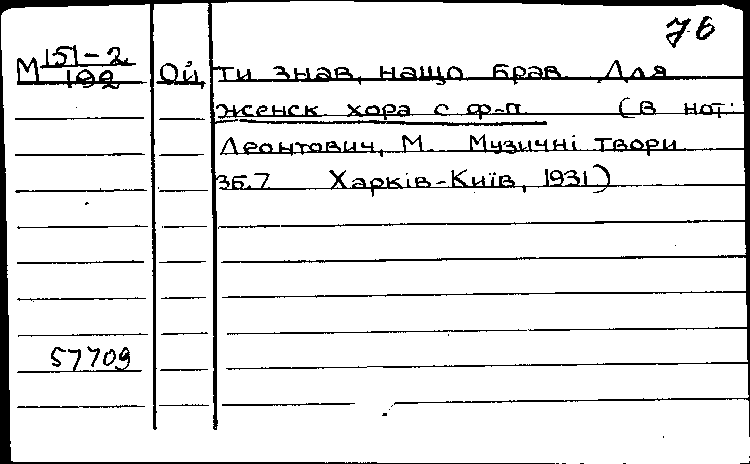 76
М 151-2/192 Ой, ти знав, нащо брав. Для
женск. хора с ф-п. (В нот:
Леонтович, М. Музичні твори.
Зб.7 Харків-Київ, 1931)
57709